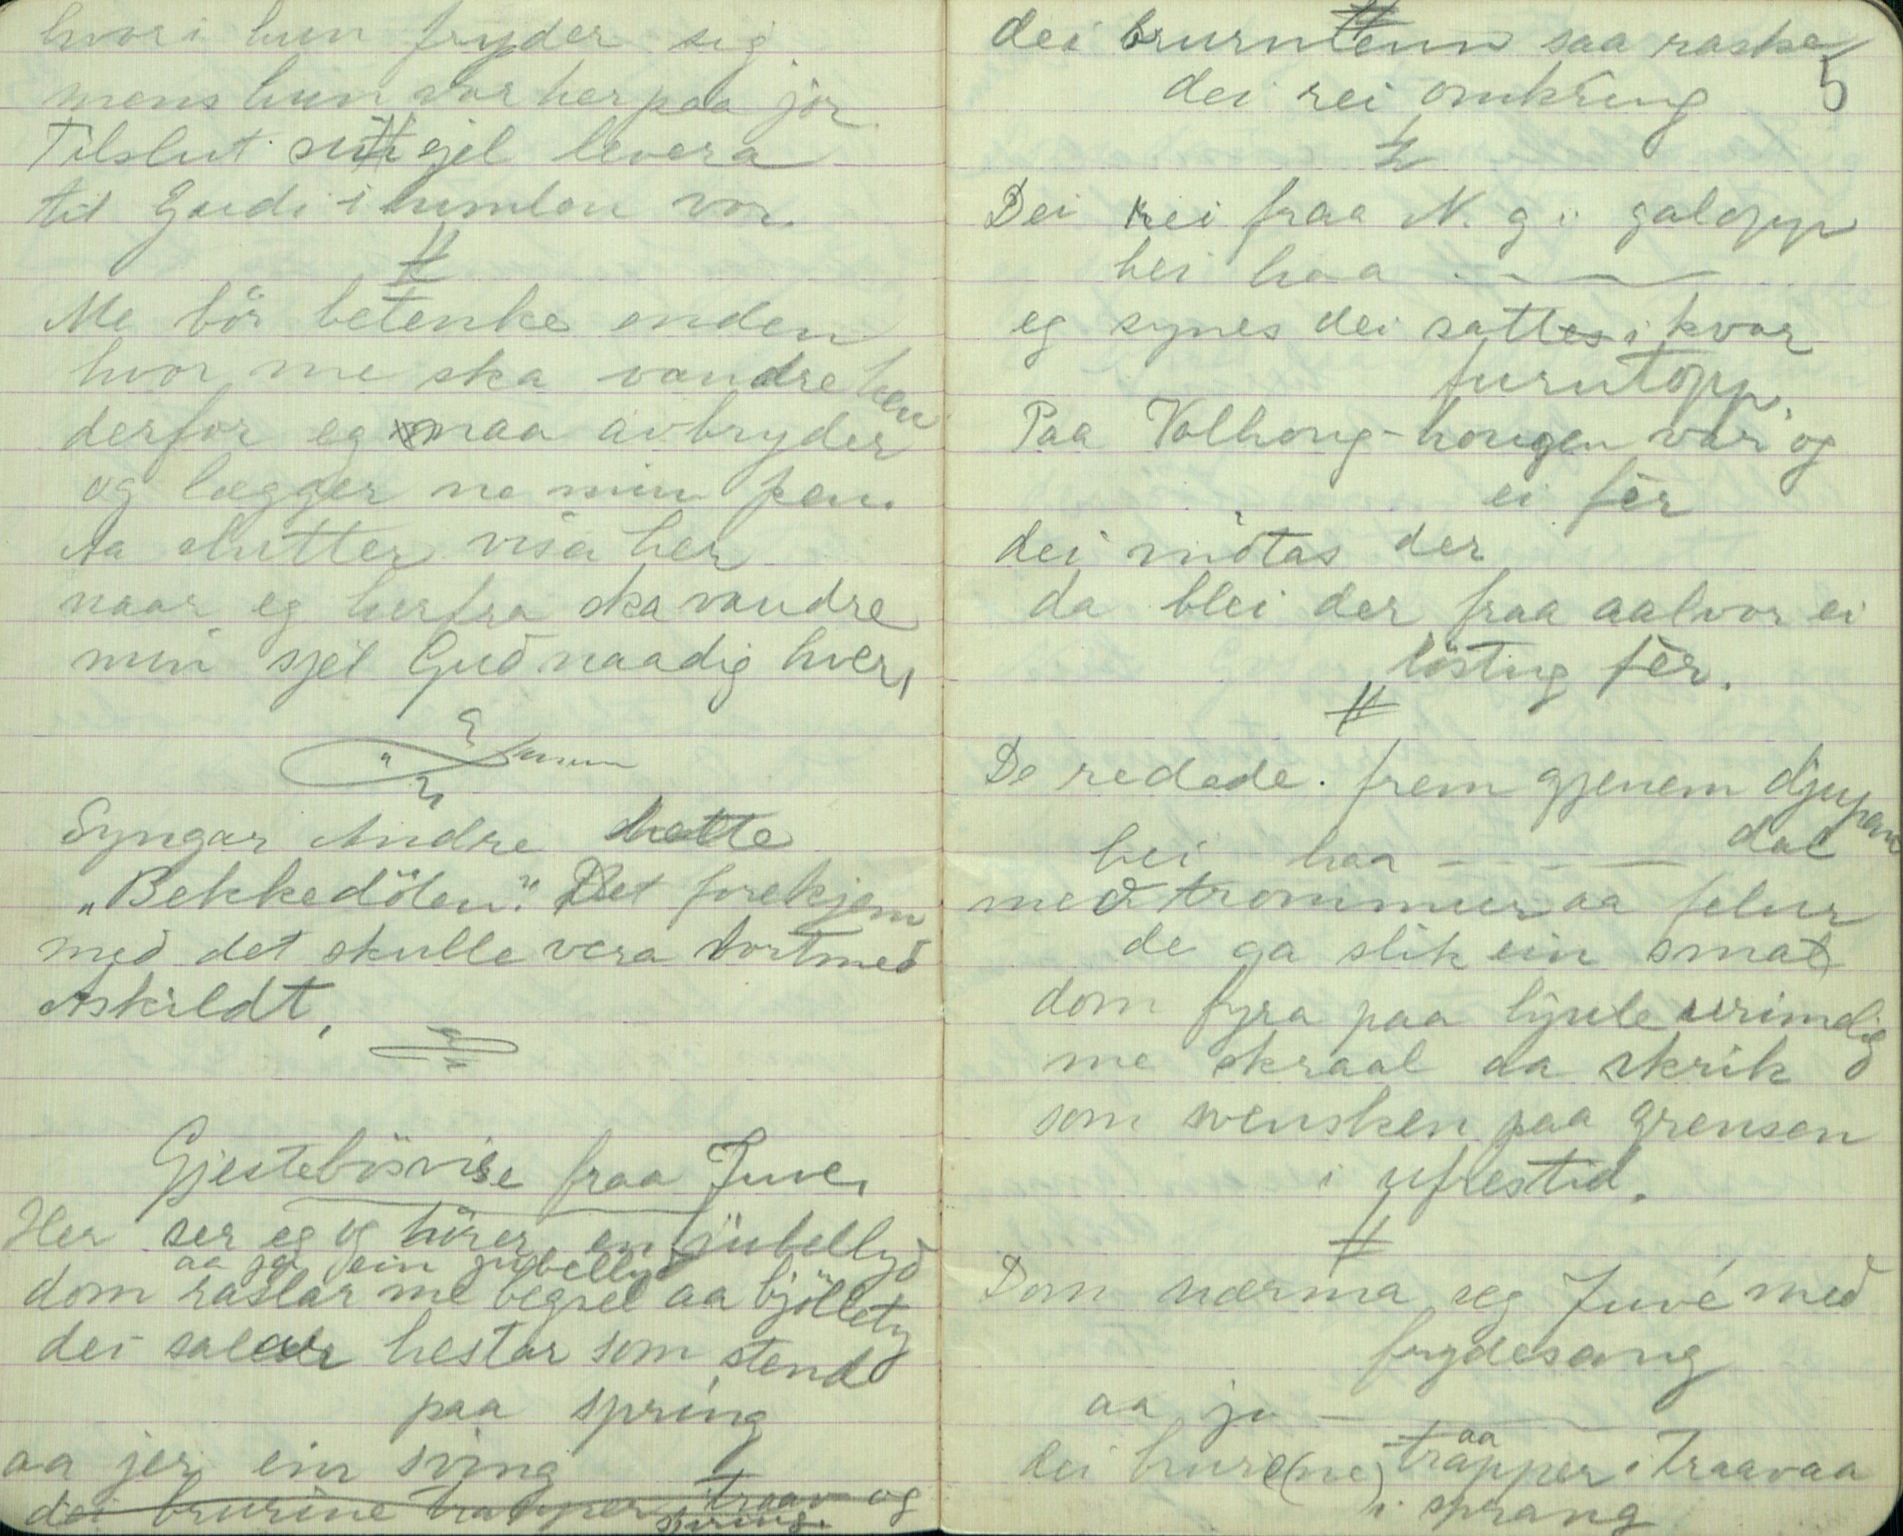 hvori hun fryder sig
mens hun var her paa jor
Tilslut sin sjel levera
til Gud i himlen vor.
Me bör betenke enden
hvor me ska vandre hen
derfor eg maa avbryder
og lægger ne min pen.
Aa slutter visa her
naar eg herfra ska vandre
min sjel Gud naadig hver,
Syngar Andre hette
"Bekkedölen". Det forekjem
med det skulle vera bortmed
Askildt,
Gjestebösvise fraa Juve,
Her ser eg og hörer en jubellyd
aa jei ein jubellyd
dom raslar me begsel aa bjöllety
dei salar hestar som stend
paa spring
aa jer ein sving
dei brurine trapper i traav og
spring.
dei brurmenn saa raske
5
dei rei omkring
Dei rei fraa N. g i galopp
hei haa - - -
eg synes dei sattes i kvar
furutopp.
Paa Valhoug-hougen var og
ei fèr
dei mötas der
da blei der fraa aalvor ei
löstug fèr.
De redede frem gjenem djupan
dal
hei haa - - - -
med trommur aa felur
de ga slik ein smal
dom fyra paa hjule urimelig
me skraal aa skrik
som svensken paa grensen
i ufrestid.
Dom nærma seg Juvé med
frydesang
aa ju - -
dei brure(ne) trapper i traav aa
aa
i sprang